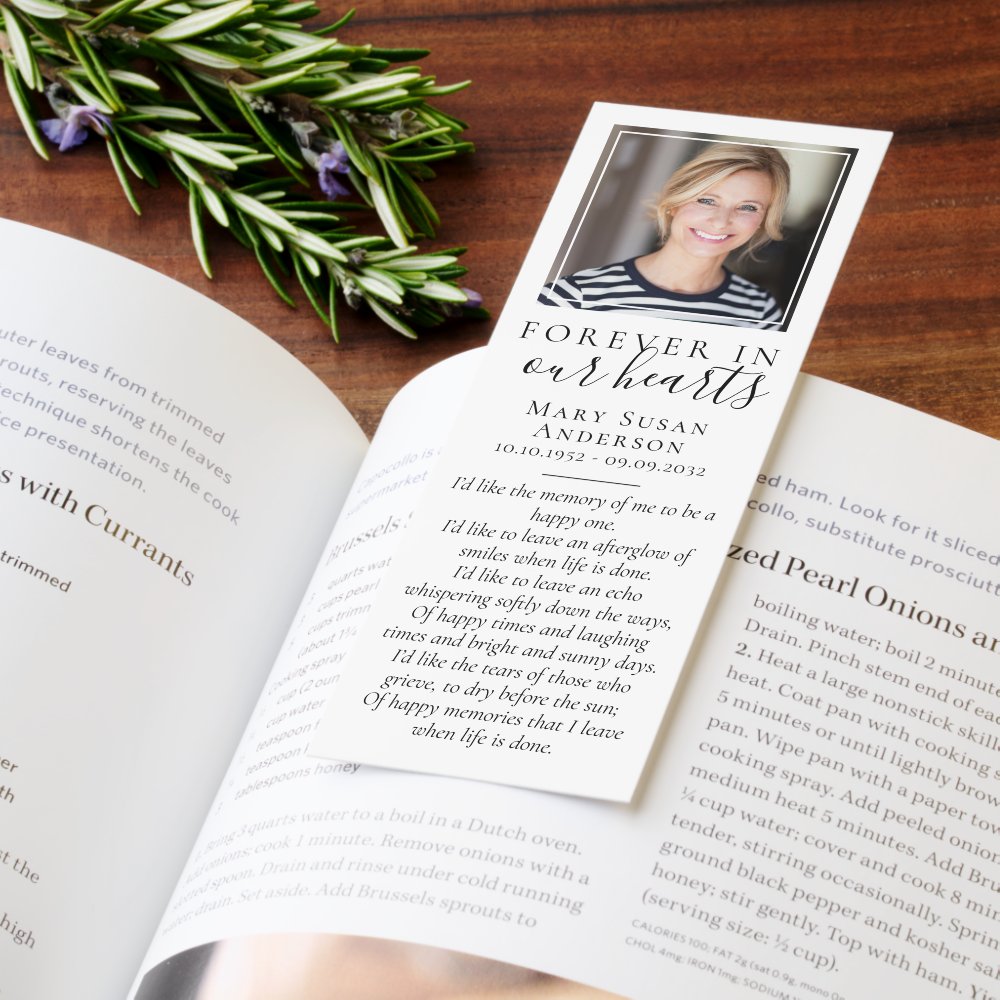 FOREVER IN
our hearts
MARY SUSAN
ANDERSON
10.10.1952 - 09.09.2032
I'd like the memory of me to be a
happy one.
I'd like to leave an afterglow of
smiles when life is done.
I'd like to leave an echo
whispering softly down the ways,
Of happy times and laughing
times and bright and sunny days.
I'd like the tears of those who
grieve, to dry before the sun;
Of happy memories that I leave
when life is done.
outer leaves from trimmed
sprouts, reserving the leaves
technique shortens the cook
presentation.
with Currants
trimmed
the
high
Capocollo is a
supermarket
Brussels
quarts wat
cups pearl
cups trimm
(about 1¼
Cooking spray
cup (2 oun
cup water
teaspoon
teaspoon
tablespoons honey
Bring 3 quarts water to a boil in a Dutch oven.
Add onions; cook 1 minute. Remove onions with a
slotted spoon. Drain and rinse under cold running
water; drain. Set aside. Add Brussels sprouts to
ed ham. Look for it sliced
collo, substitute prosciutt
zed Pearl Onions an
boiling water; boil 2 minut
Drain. Pinch stem end of eac
2. Heat a large nonstick skille
heat. Coat pan with cooking s
5 minutes or until lightly brow
pan. Wipe pan with a paper tow
cooking spray. Add peeled onion
medium heat 5 minutes. Add Bru
¼ cup water; cover and cook 8 min
tender, stirring occasionally. Sprin
ground black pepper and kosher sal
honey; stir gently. Top with ham. Yi
(serving size: ½ cup).
CALORIES 100; FAT 2g (sat 0.9g, mono 0
CHOL 4mg; IRON 1mg; SODIUM